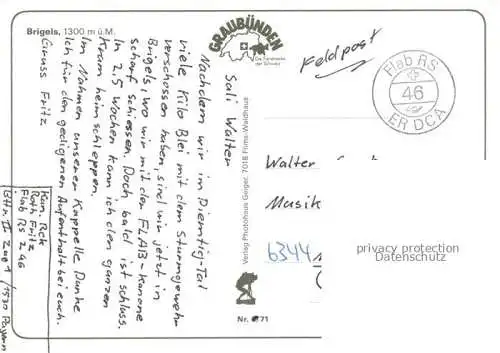 Brigels, 1300 m ü.M.
GRAUBÜNDEN
Die Ferienecke
der Schweiz
Feldpost
Flab RS
46
ER DCA
Sali Walter
Nachdem wir im Diemtig-Tal
viele Kilo Blei mit dem Sturmgewehr
verschossen haben, sind wir jetzt in
Brigels, wo wir mit den FLAB-Kanone
scharf schiessen. Doch bald ist schluss.
In 2,5 Wochen kann ich den ganzen
Kram heim schleppen.
Im Nahmen unserer Kappelle Danke
ich für den gedigenen Aufenthalt bei euch.
Gruss Fritz
Kan. Rek
Roth Fritz
Flab RS 246
Bttr II Zug 1 / 1530 Payern
Verlag Photohaus Geiger, 7018 Flims-Waldhaus
Walter
Musik
6344
privacy protection
Datenschutz
Nr. 71